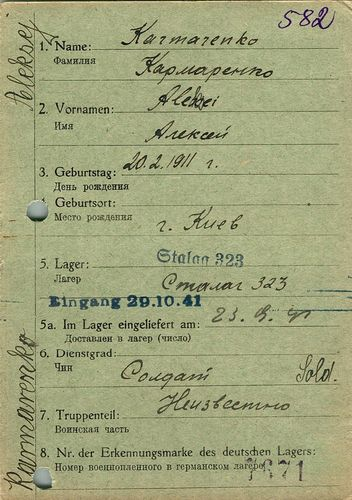 582
Aleksej
Karmarenko
1. Name: Karmarenko
Фамилия
Кармаренко
2. Vornamen: Aleksei
Имя
Алексей
3. Geburtstag: 20.2.1911 г.
День рождения
4. Geburtsort:
Место рождения
г. Киев
5. Lager: Stalag 323
Лагер Сталаг 323
Eingang 29.10.41
5a. Im Lager eingeliefert am:
Доставлен в лагер (число)
6. Dienstgrad:
Чин
Солдат Sold.
7. Truppenteil: Неизвестно
Воинская часть
8. Nr. der Erkennungsmarke des deutschen Lagers:
Номер военнопленного в германском лагере
7671